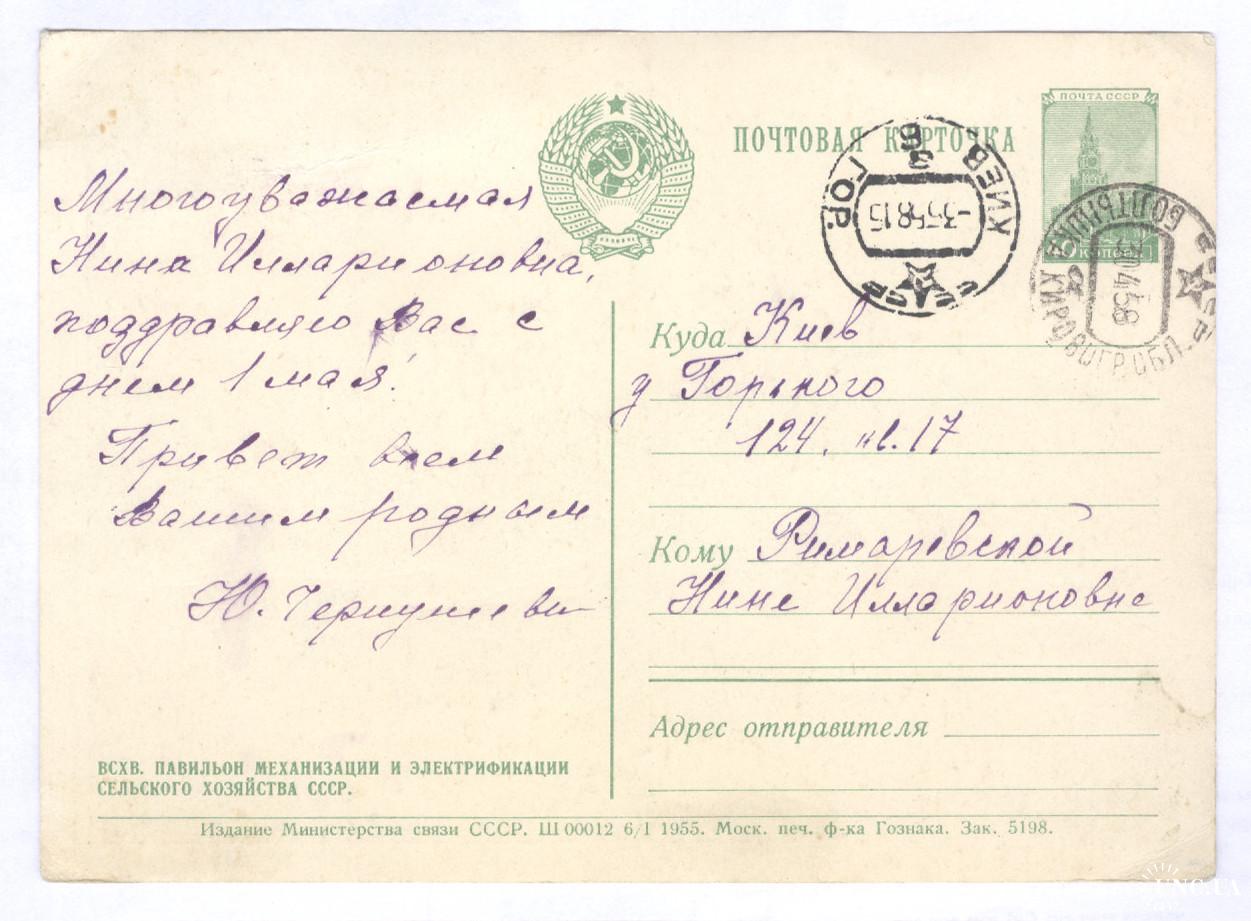 ПОЧТОВАЯ КАРТОЧКА
ПОЧТА СССР
КОПЕЕК
КИЕВ
ГОР.
СССР
-3.5.58.15
БОЛТЫШКА
КИРОВОГР. ОБЛ.
СССР
30.4.58
Многоуважаемая
Нина Илларионовна,
поздравляю Вас с
днем 1 мая!
Привет всем
Вашим родным
Куда Киев
у Горького
124. кв. 17
Кому Римаревской
Нине Илларионовне
Адрес отправителя
ВСХВ. ПАВИЛЬОН МЕХАНИЗАЦИИ И ЭЛЕКТРИФИКАЦИИ
СЕЛЬСКОГО ХОЗЯЙСТВА СССР.
Издание Министерства связи СССР. Ш 00012 6/I 1955. Моск. печ. ф-ка Гознака. Зак. 5198.
UNC.UA